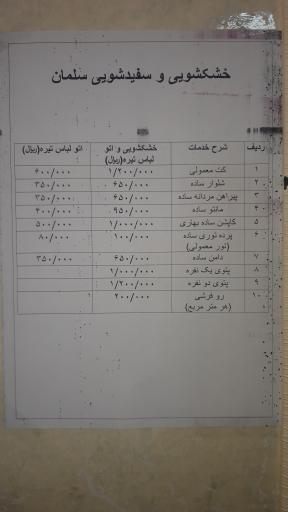 خشکشویی و سفیدشویی سلمان
ردیف شرح خدمات خشکشویی و اتو لباس تیره(ریال) اتو لباس تیره(ریال)
۱ کت معمولی ۱/۲۰۰/۰۰۰ ۶۰۰/۰۰۰
۲ شلوار ساده ۶۵۰/۰۰۰ ۳۵۰/۰۰۰
۳ پیراهن مردانه ساده ۶۵۰/۰۰۰ ۳۵۰/۰۰۰
۴ مانتو ساده ۹۵۰/۰۰۰ ۴۰۰/۰۰۰
۵ کاپشن ساده بهاری ۱/۰۰۰/۰۰۰ ۵۰۰/۰۰۰
۶ پرده توری ساده (تور معمولی) ۱۰۰/۰۰۰ ۸۰/۰۰۰
۷ دامن ساده ۶۵۰/۰۰۰ ۳۵۰/۰۰۰
۸ پتوی یک نفره ۱/۰۰۰/۰۰۰
۹ پتوی دو نفره ۱/۲۰۰/۰۰۰
۱۰ رو فرشی (هر متر مربع) ۲۰۰/۰۰۰